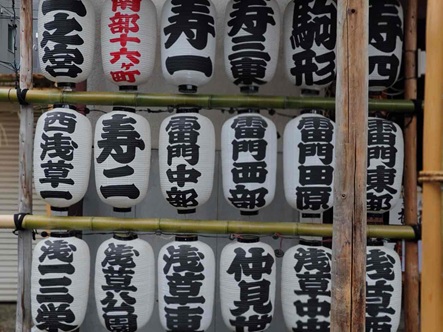 一之宮
南部十六町
寿一
寿三東
駒形
寿四
西浅草一
寿二
雷門中部
雷門西部
雷門田原
雷門東部
浅一三栄
浅草公園
浅草東
仲見世
浅草中
浅草